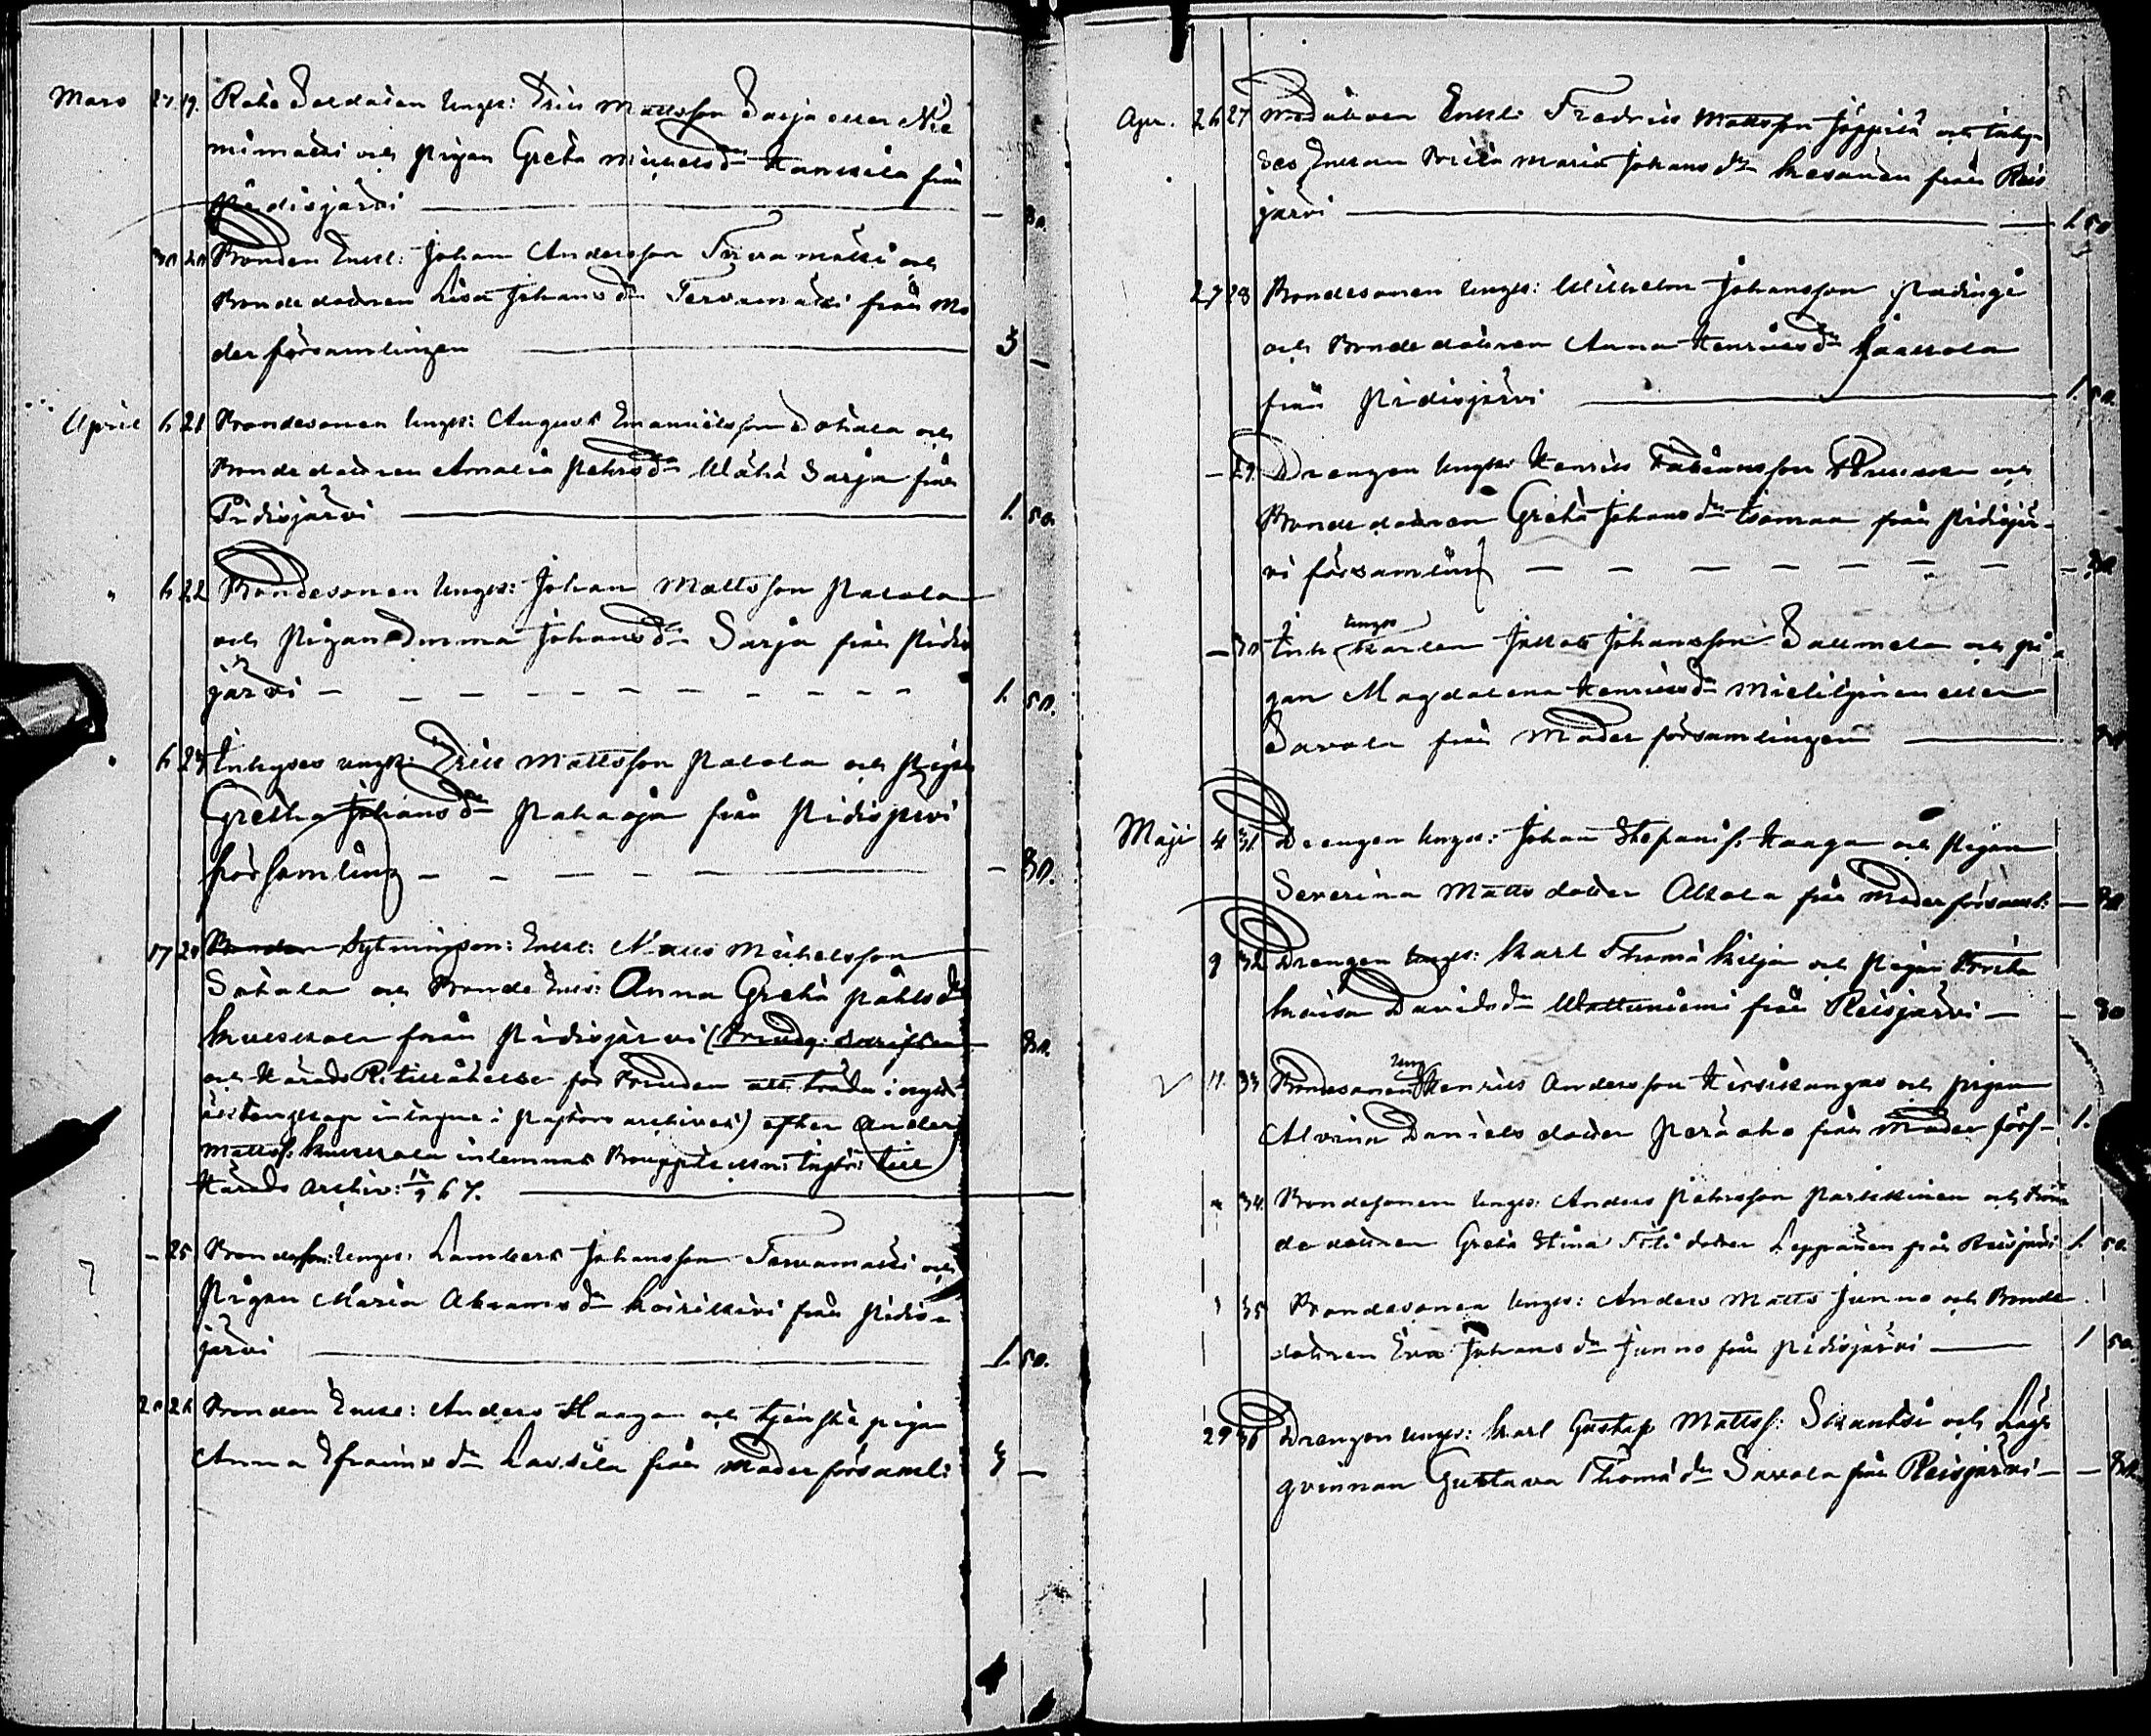 Mars 27 19. Rote Soldaten Ungk: Eric Mattsson Sarja eller Nie
mimäki och pigan Greta Michelsdr Hankila från
Pidisjärvi — 80.
30 20 Bonden Enkl: Johan Andersson Tervamäki och
Bondedottren Lisa Johansdr Tervamäki från Mo
derförsamlingen 3 —
April 6 21 Bondesonen Ungk: August Emanuelsson Sohala och
Bondedottren Amalia Pehrsdr Wähä Sarja från
Pidisjärvi 1. 50.
" 6 22 Bondesonen Ungk: Johan Mattsson Patola
och Pigan Johansdr Sarja från Pidis
järvi 1. 50.
" 6 23 Inhyses ungk: Eric Mattsson Patola och Pigan
Gretha Johansdr Pahaoja från Pidisjärvi
församling — 80.
17 24 Bonden Sytningsm: Enkl: Matts Michelsson
Sohala och Bonde Enk: Anna Greta Påhlsdr
Kuuskola från Pidisjärvi
och Härads R: tillåtelse för Bruden att träda i nytt 80.
äktenskap intagne i Pastors archivet) efter Anders
Matts: Kuuskola inlemnat Bouppteckn: till
Härads Archiv: 12/9 67.
— 25 Bondeson: Ungk: Lambert Johansson Tervamäki och
Pigan Maria Abramsdr Koirikivi från Pidis-
järvi 1. 50.
20 26 Bonden Enkl: Anders Haagan och tjenste pigan
Anna Efraimsdr Lassila från Moderförsaml: 3 —
Apr. 26 27 Enkl: Fredric Mattsson Jäppilä och inhy-
ses Enkan Brita Maria Johansdr Kesanen från Reis
järvi 1. 50.
27 28 Bondesonen Ungk: Wilhelm Johansson Padinge
och Bondedottren Anna Henricsdr
från Pidisjärvi 1. 50.
— 29. Drengen Ungk: Henric Fabiansson och
Bondedottren Greta Johansdr Isomaa från Pidisjär-
vi församling — 80
— 30 Inh: ungk karlen Jakob Johansson Salmela och pi-
gan Magdalena Henricsdr Mielitynen eller
Savola från Moderförsamlingen 80
Maji 4 31. Drengen Ungk: Johan Stephanis: Haaga och Pigan
Severina Matts dotter Alkola från Moderförsaml: — 80
9 32 Drengen Ungk: Karl Thomæ Kilja och Pigan Brita
Kaisa Davidsdr Wattuniemi från Reisjärvi — — 80
11. 33 Bondesonen Ung Henric Andersson Hirsikangas och pigan
Alvina Daniels dotter Peräaho från Moder förs- 1.
" 34. Bondesonen Ungk: Anders Pehrsson Parkkinen och Bon
de dottren Greta Stina dotter Leppänen från Reisjärvi 1. 50.
" 35 Bondesonen Ungk: Anders Matts Junno och Bonde
dottren Eva Johansdr Junno från Pidisjärvi 1 50.
29 36 Drengen Ungk: Karl Gustaf Matts: Skantsi och Lägr
qvinnan Gustava Thomædr Savola från Reisjärvi — — 80.